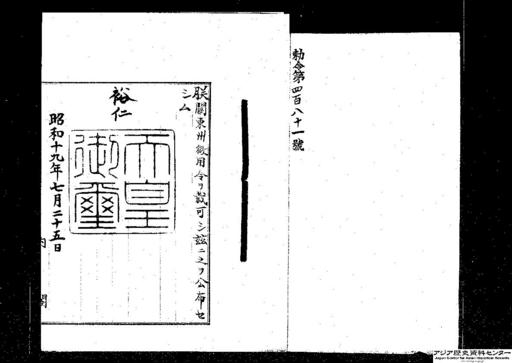 勅令第四百八十一號
朕關東州徴用令ヲ裁可シ茲ニ之ヲ公布セ
シム
裕仁
天皇
御璽
昭和十九年七月二十五日
内閣
アジア歴史資料センター
Japan Center for Asian Historical Records